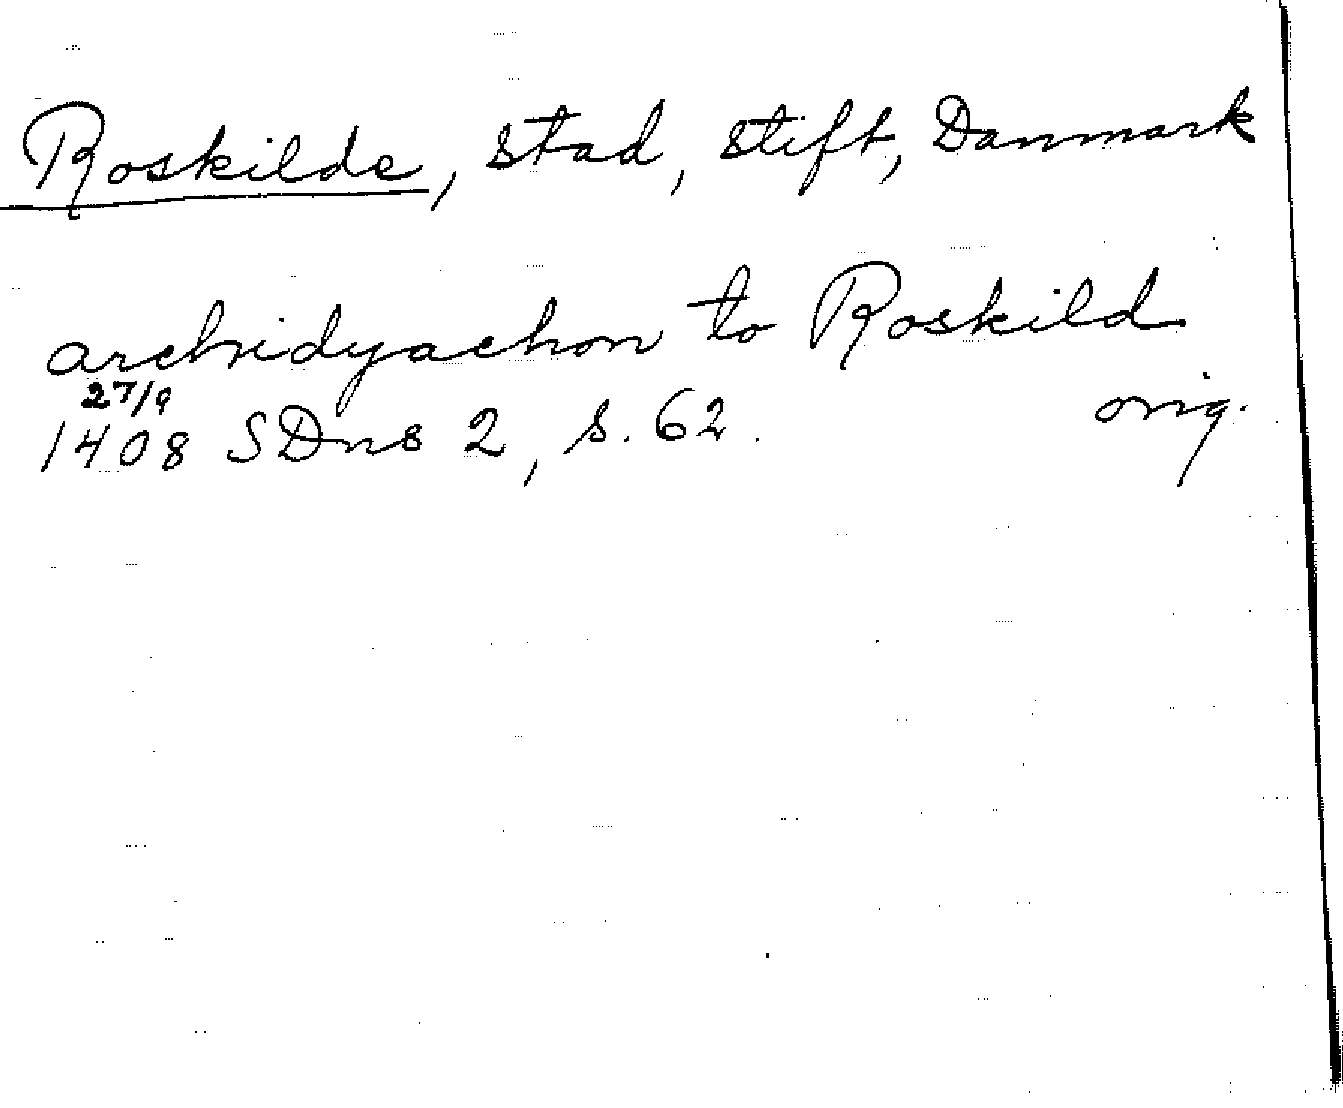 Roskilde, stad, stift, Danmark
archidyachon to Roskild
27/9
1408 SDns 2, s. 62. orig.